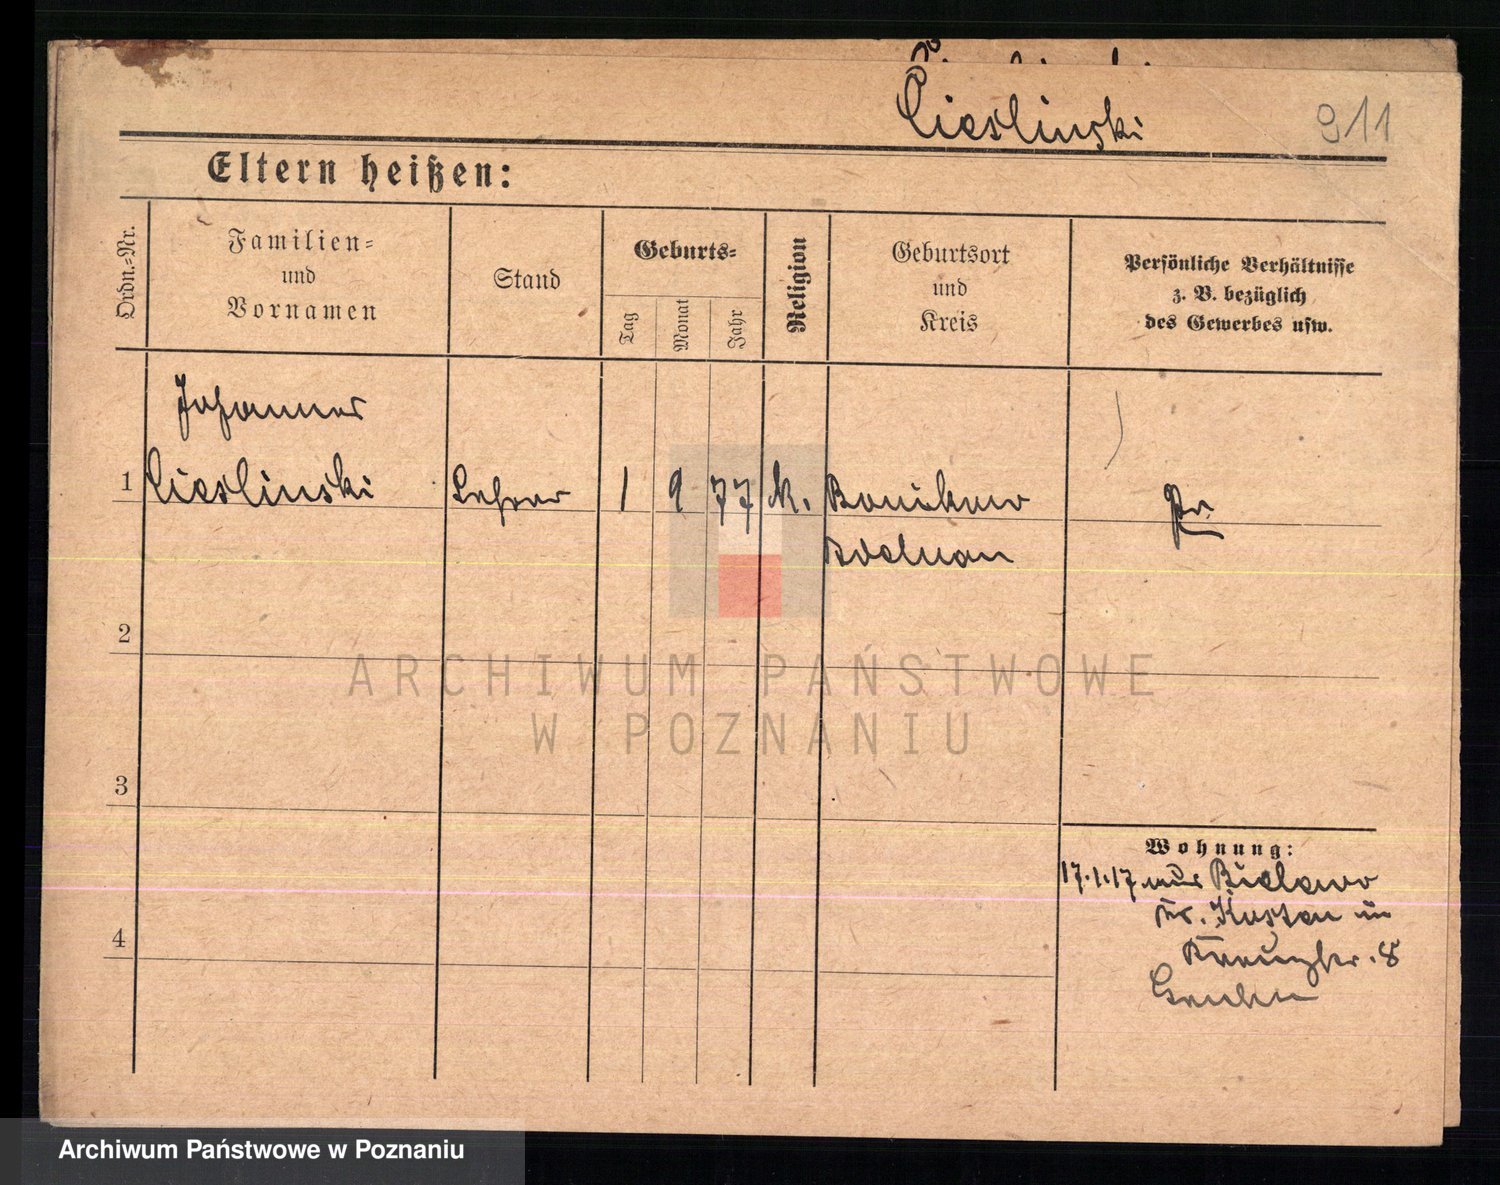 Cieslinski
911
Eltern heißen:
Ordn.=Nr.
Familien=
und
Vornamen
Stand
Geburts=
Tag
Monat
Jahr
Religion
Geburtsort
und
Kreis
Persönliche Verhältnisse
z. B. bezüglich
des Gewerbes usw.
Johannes
1 Cieslinski Lehrer 1 9 77 k. Bonikowo
Pr.
2
3
4
Wohnung:
17.1.17 aus Bielewo
Kr. Kosten in
8
ARCHIWUM PAŃSTWOWE
W POZNANIU
Archiwum Państwowe w Poznaniu